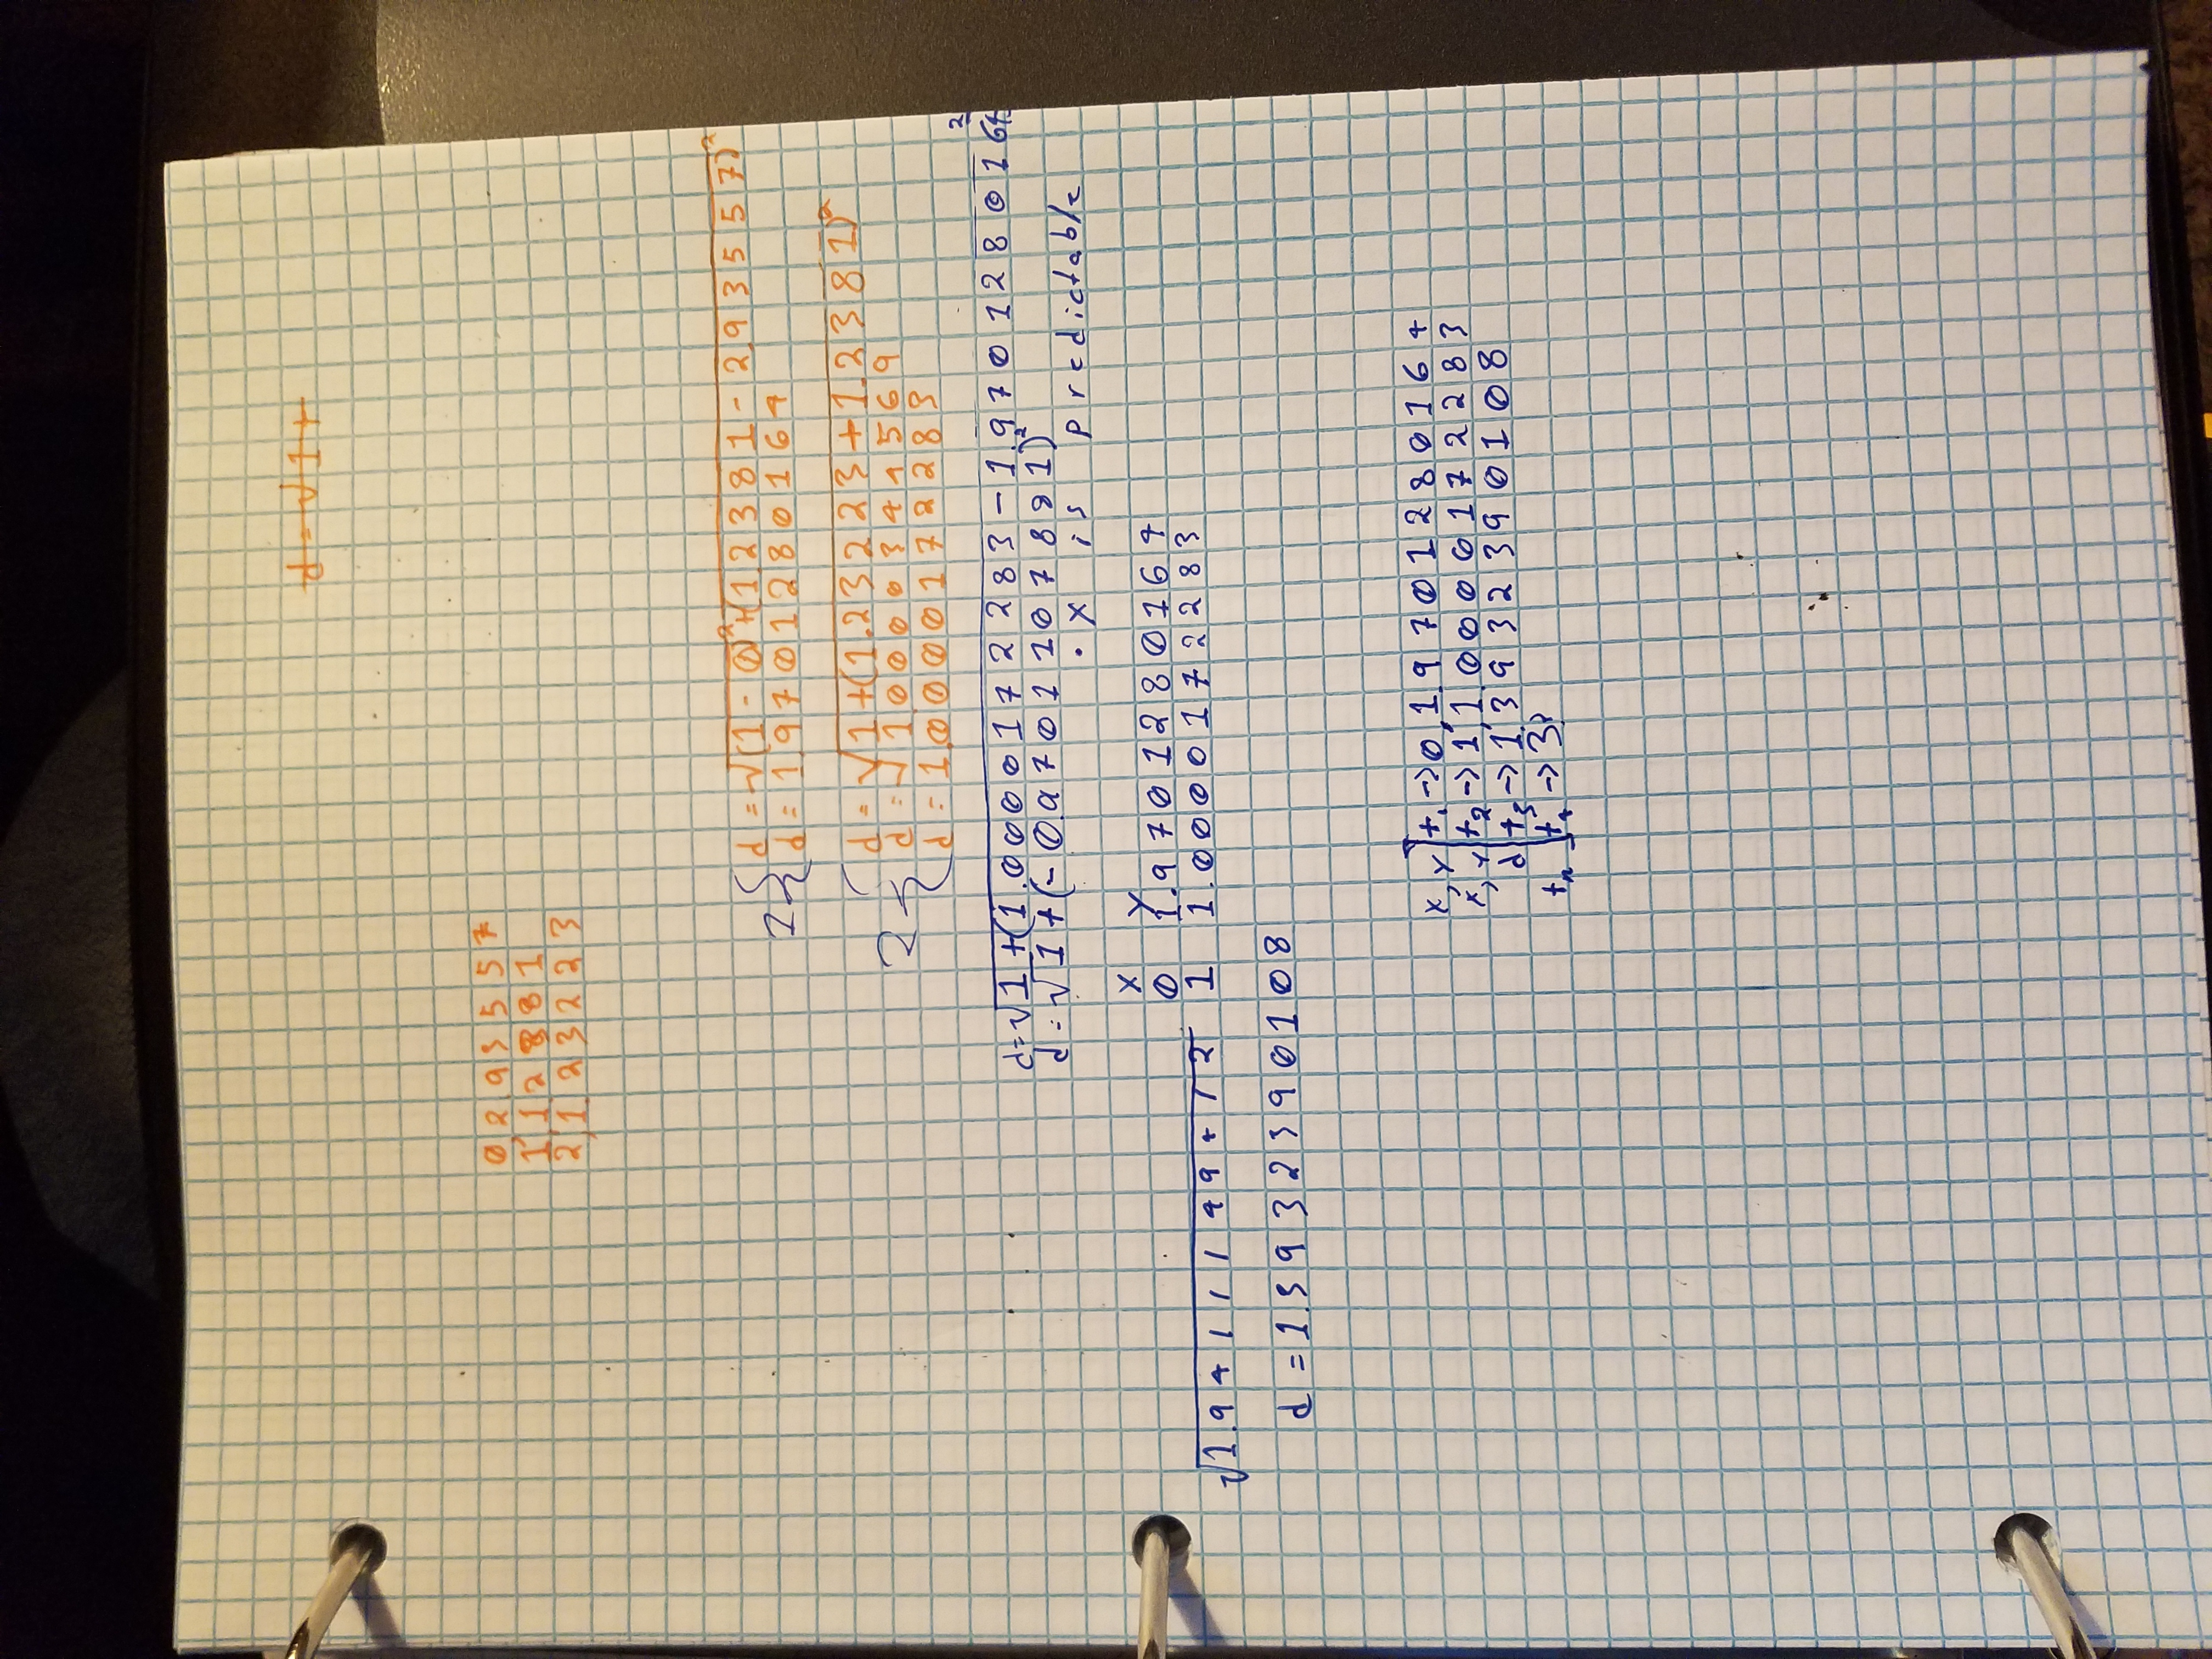 d = √1+
0,2.935557
1,1.2881
2,1.23223
1 { d = √(1-0)²+(1.2381-2.935557)²
d = 1.9701280164
2 { d = √1+(1.23223+1.2381)²
d = √1.0000344569
d = 1.0000172283
d=√1+(1.0000172283-1.9701280164)²
d=√1+(-0.9701107881)²
• x is predictable
x y
0 1.9701280164
√1.9411149412 1 1.0000172283
d = 1.3932390108
x,y t₁ → 0,1.9701280164
x,y t₂ → 1,1.0000172283
d t₃ → 1.3932390108
tₙ t₄ → 3?